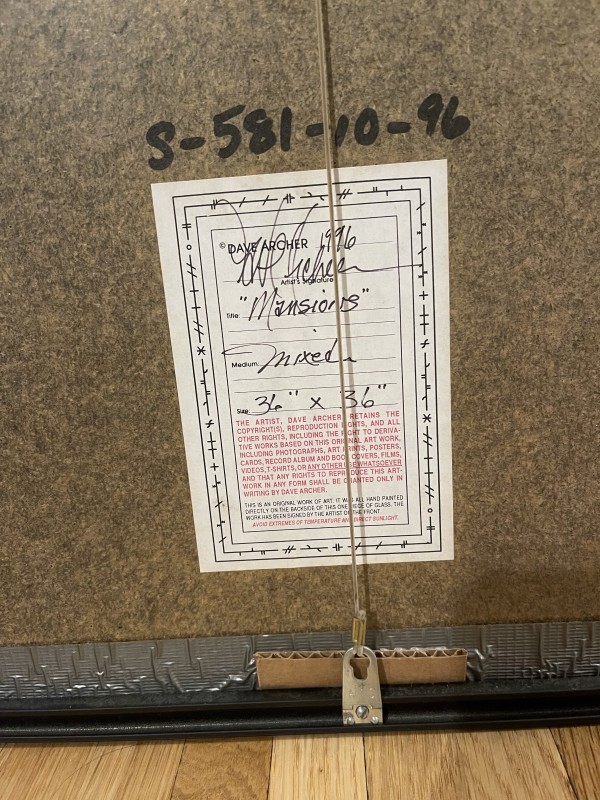 S-581-10-96
© DAVE ARCHER 1996
Artist's Signature
Title: "Mansions"
Medium: mixed
Size: 36" x 36"
THE ARTIST, DAVE ARCHER, RETAINS THE
COPYRIGHT(S), REPRODUCTION RIGHTS, AND ALL
OTHER RIGHTS, INCLUDING THE RIGHT TO DERIVA-
TIVE WORKS BASED ON THIS ORIGINAL ART WORK,
INCLUDING PHOTOGRAPHS, ART PRINTS, POSTERS,
CARDS, RECORD ALBUM AND BOOK COVERS, FILMS,
VIDEOS, T-SHIRTS, OR ANY OTHER USE WHATSOEVER
AND THAT ANY RIGHTS TO REPRODUCE THIS ART-
WORK IN ANY FORM SHALL BE GRANTED ONLY IN
WRITING BY DAVE ARCHER.
THIS IS AN ORIGINAL WORK OF ART. IT WAS ALL HAND PAINTED
DIRECTLY ON THE BACKSIDE OF THIS ONE PIECE OF GLASS. THE
WORK HAS BEEN SIGNED BY THE ARTIST ON THE FRONT.
AVOID EXTREMES OF TEMPERATURE AND DIRECT SUNLIGHT.